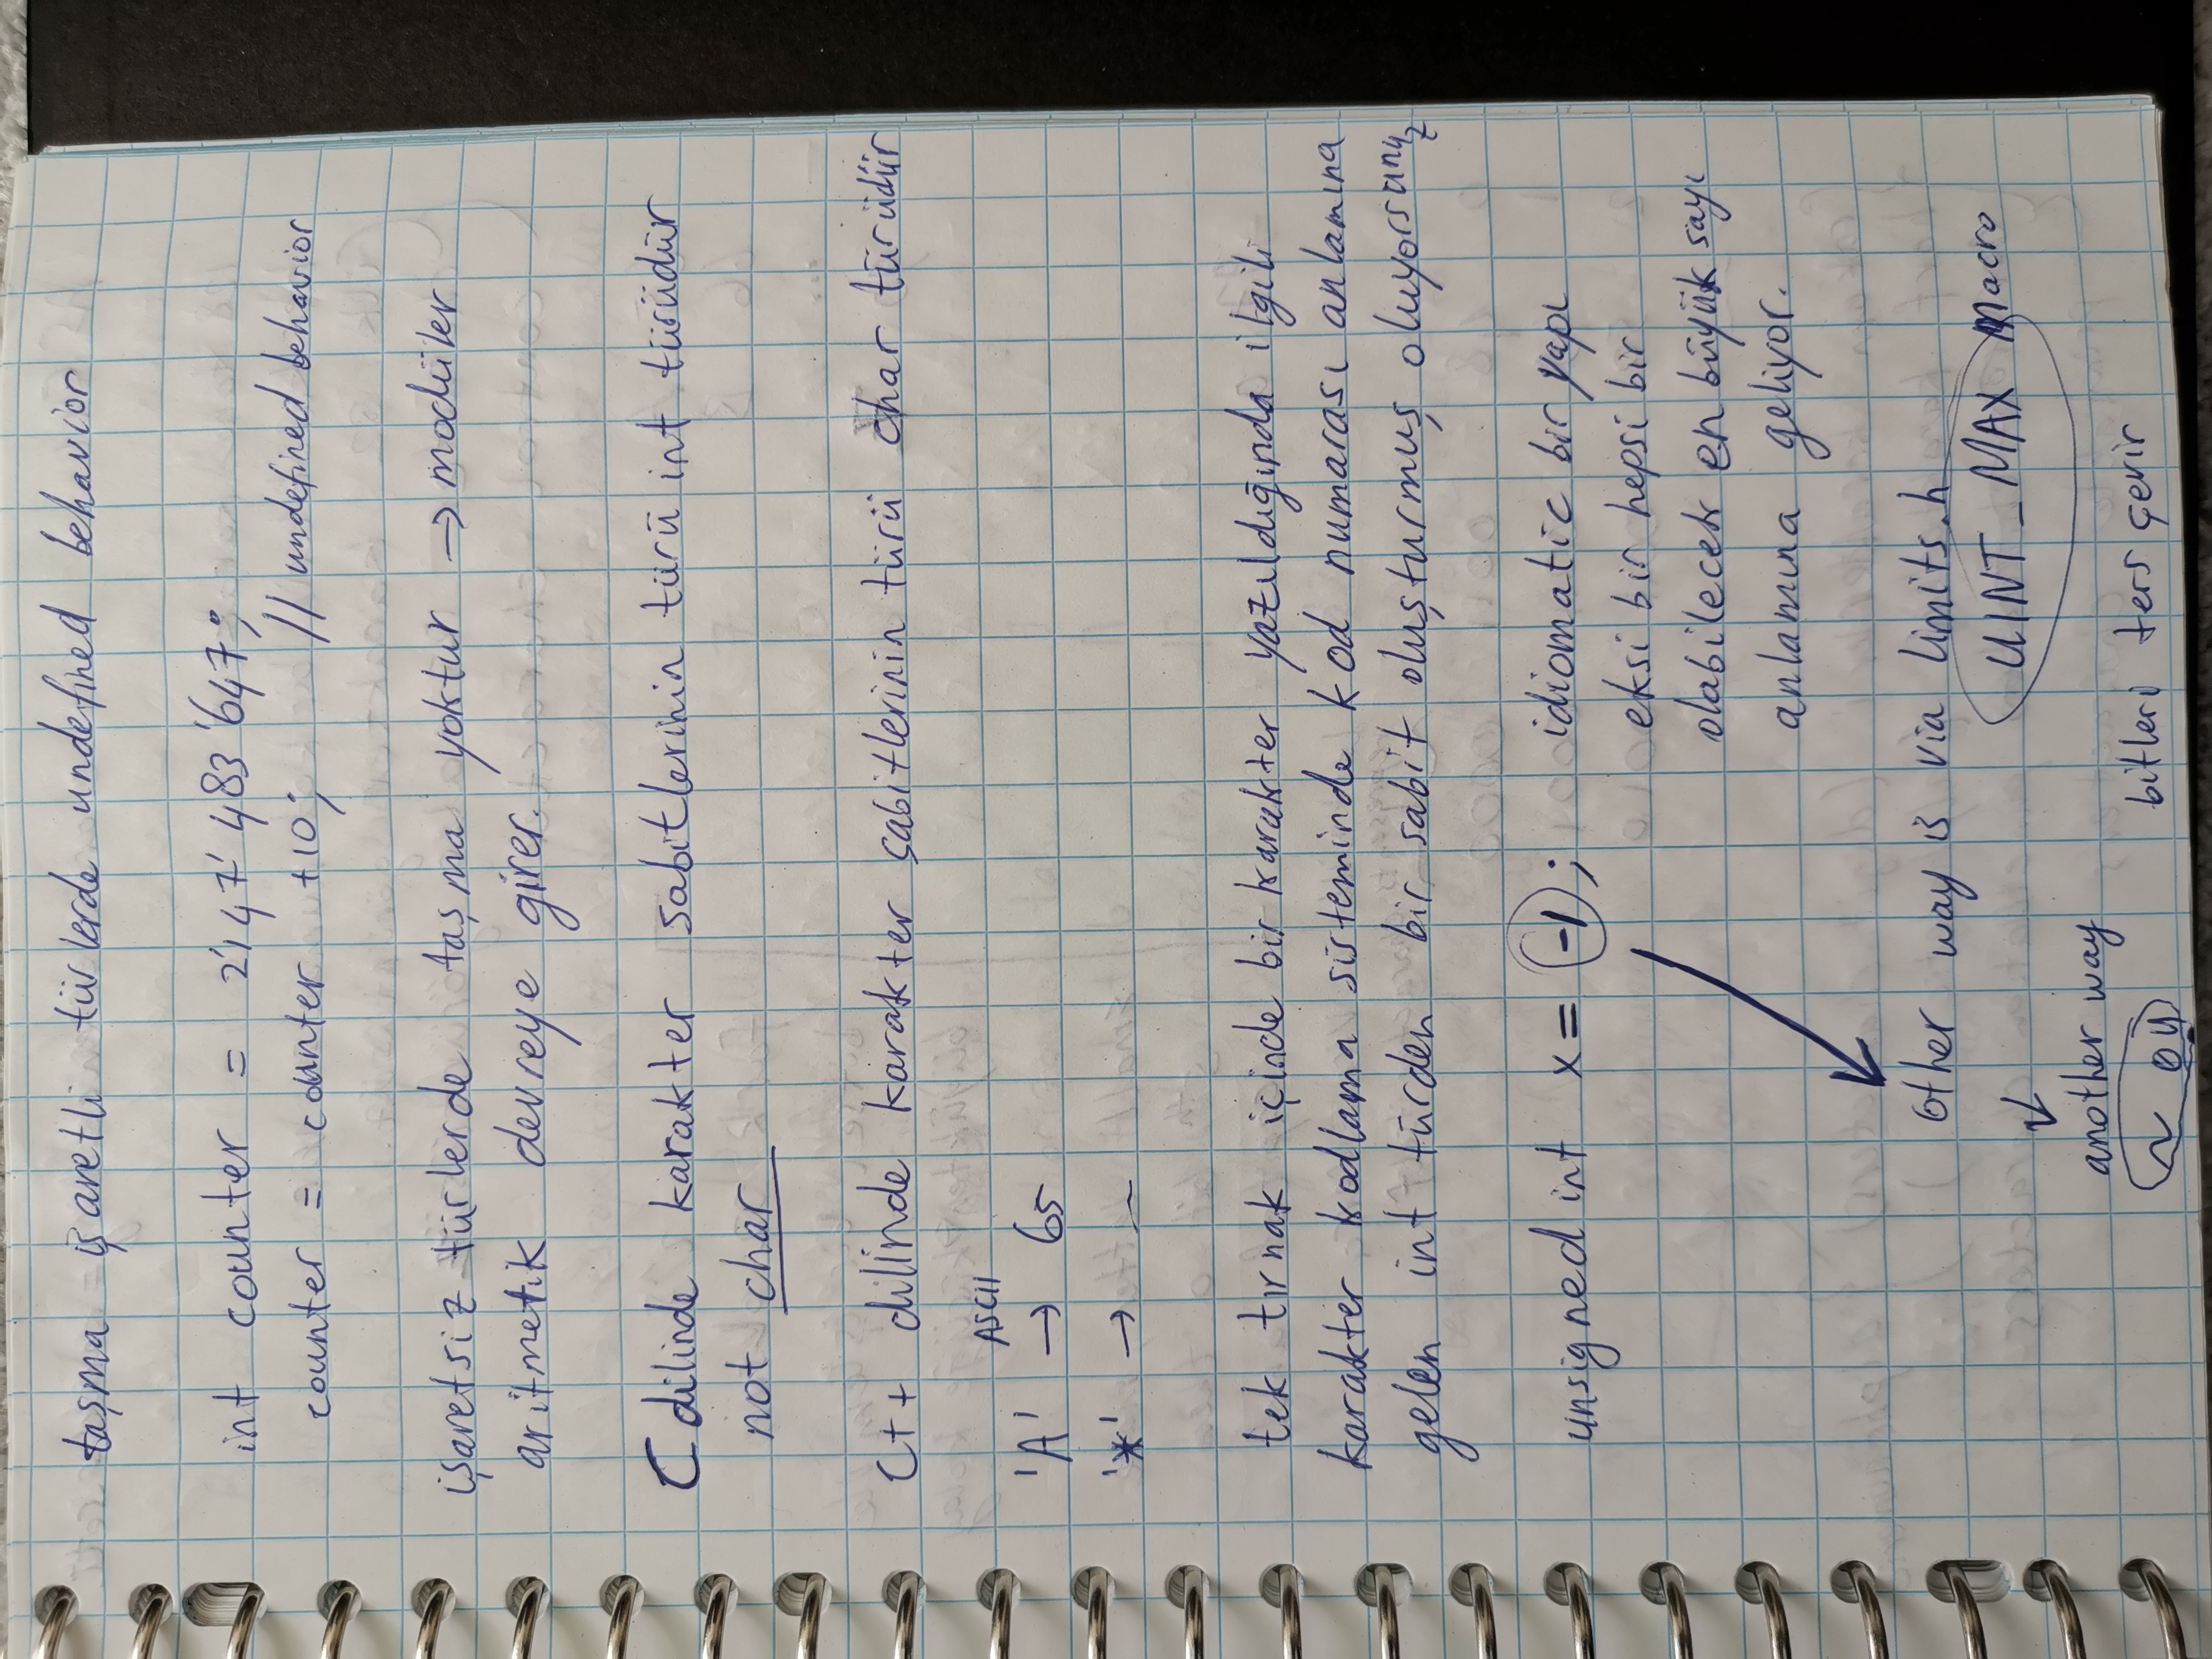 taşma işaretli türlerde undefined behavior
int counter = 2'147'483'647;
counter = counter +10; // undefined behavior
işaretsiz türlerde taşma yoktur → modüler
aritmetik devreye girer.
C dilinde karakter sabitlerinin türü int türüdür
not char
C++ dilinde karakter sabitlerinin türü char türüdür
ASCII
'A' → 65
'*' → _
tek tırnak içinde bir karakter yazıldığında ilgili
karakter kodlama sisteminde kod numarası anlamına
gelen int türden bir sabit oluşturmuş oluyorsunuz
unsigned int x = -1; idiomatic bir yapı
eksi bir hepsi bir
olabilecek en büyük sayı
anlamına geliyor.
Other way is via limits.h
UINT_MAX macro
another way
~ 0u bitleri ters çevir